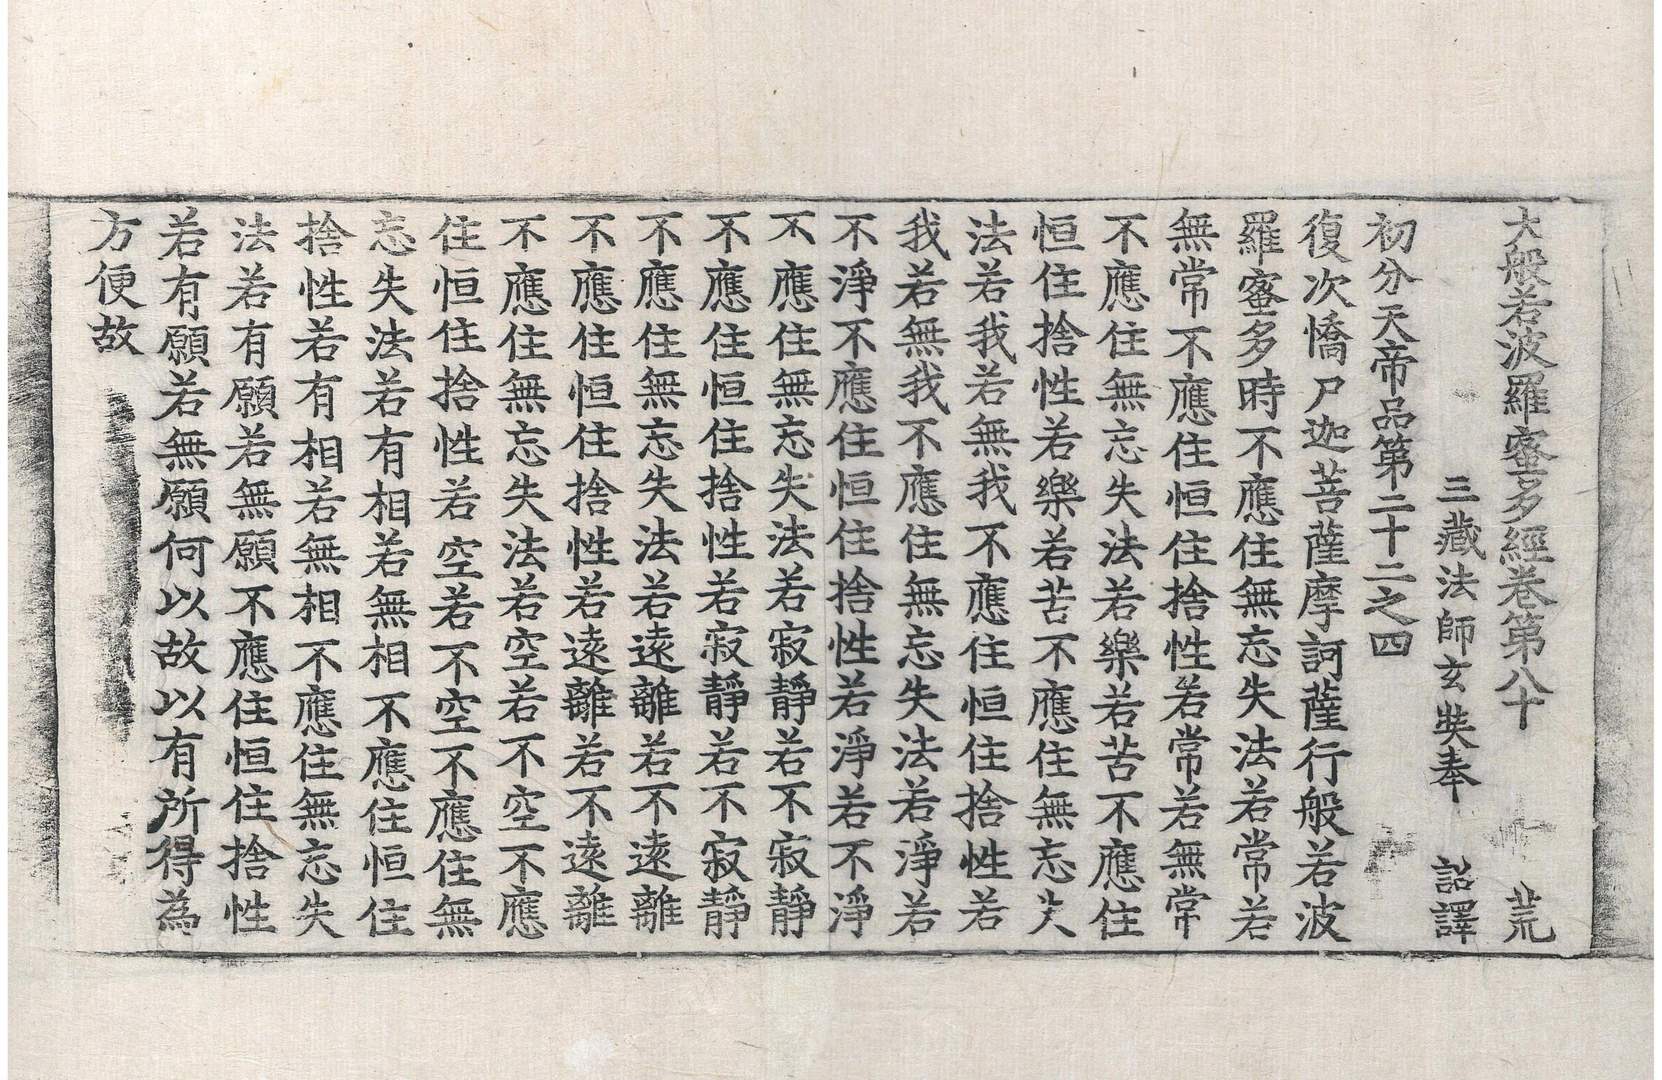 大般若波羅蜜多經卷第八十 荒
三藏法師玄奘奉 詔譯
初分天帝品第二十二之四
復次憍尸迦菩薩摩訶薩行般若波
羅蜜多時不應住無忘失法若常若
無常不應住恒住捨性若常若無常
不應住無忘失法若樂若苦不應住
恒住捨性若樂若苦不應住無忘失
法若我若無我不應住恒住捨性若
我若無我不應住無忘失法若淨若
不淨不應住恒住捨性若淨若不淨
不應住無忘失法若寂靜若不寂靜
不應住恒住捨性若寂靜若不寂靜
不應住無忘失法若遠離若不遠離
不應住恒住捨性若遠離若不遠離
不應住無忘失法若空若不空不應
住恒住捨性若空若不空不應住無
忘失法若有相若無相不應住恒住
捨性若有相若無相不應住無忘失
法若有願若無願不應住恒住捨性
若有願若無願何以故以有所得為
方便故